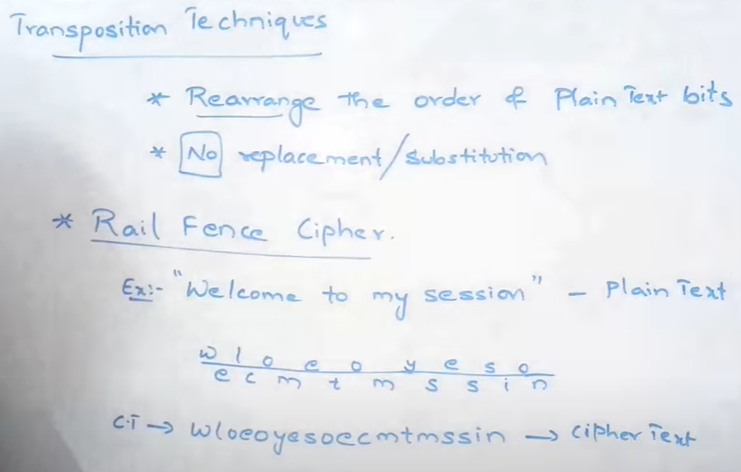 Transposition Techniques
* Rearrange the order of Plain Text bits
* No replacement/substitution
* Rail Fence Cipher.
Ex:- "Welcome to my session" - Plain Text
w l o e o y e s o
e c m t m s s i n
C.T → wloeoyesoecmtmssin → cipher Text